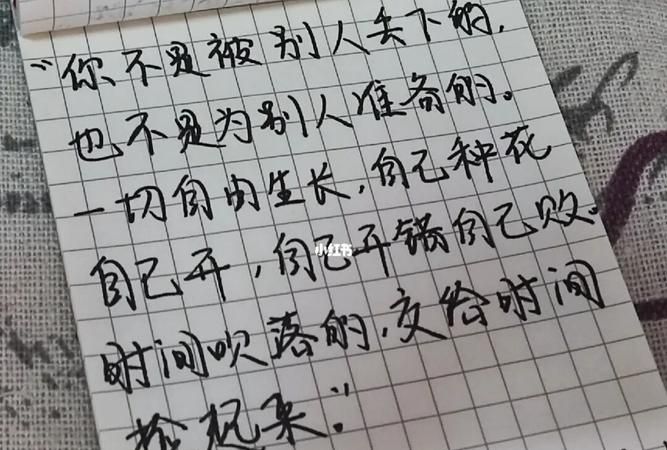 “你不是被别人丢下的，
也不是为别人准备的。
一切自由生长，自己种花
自己开，自己开错自己败。
小红书
时间吹落的，交给时间
捡起来。”